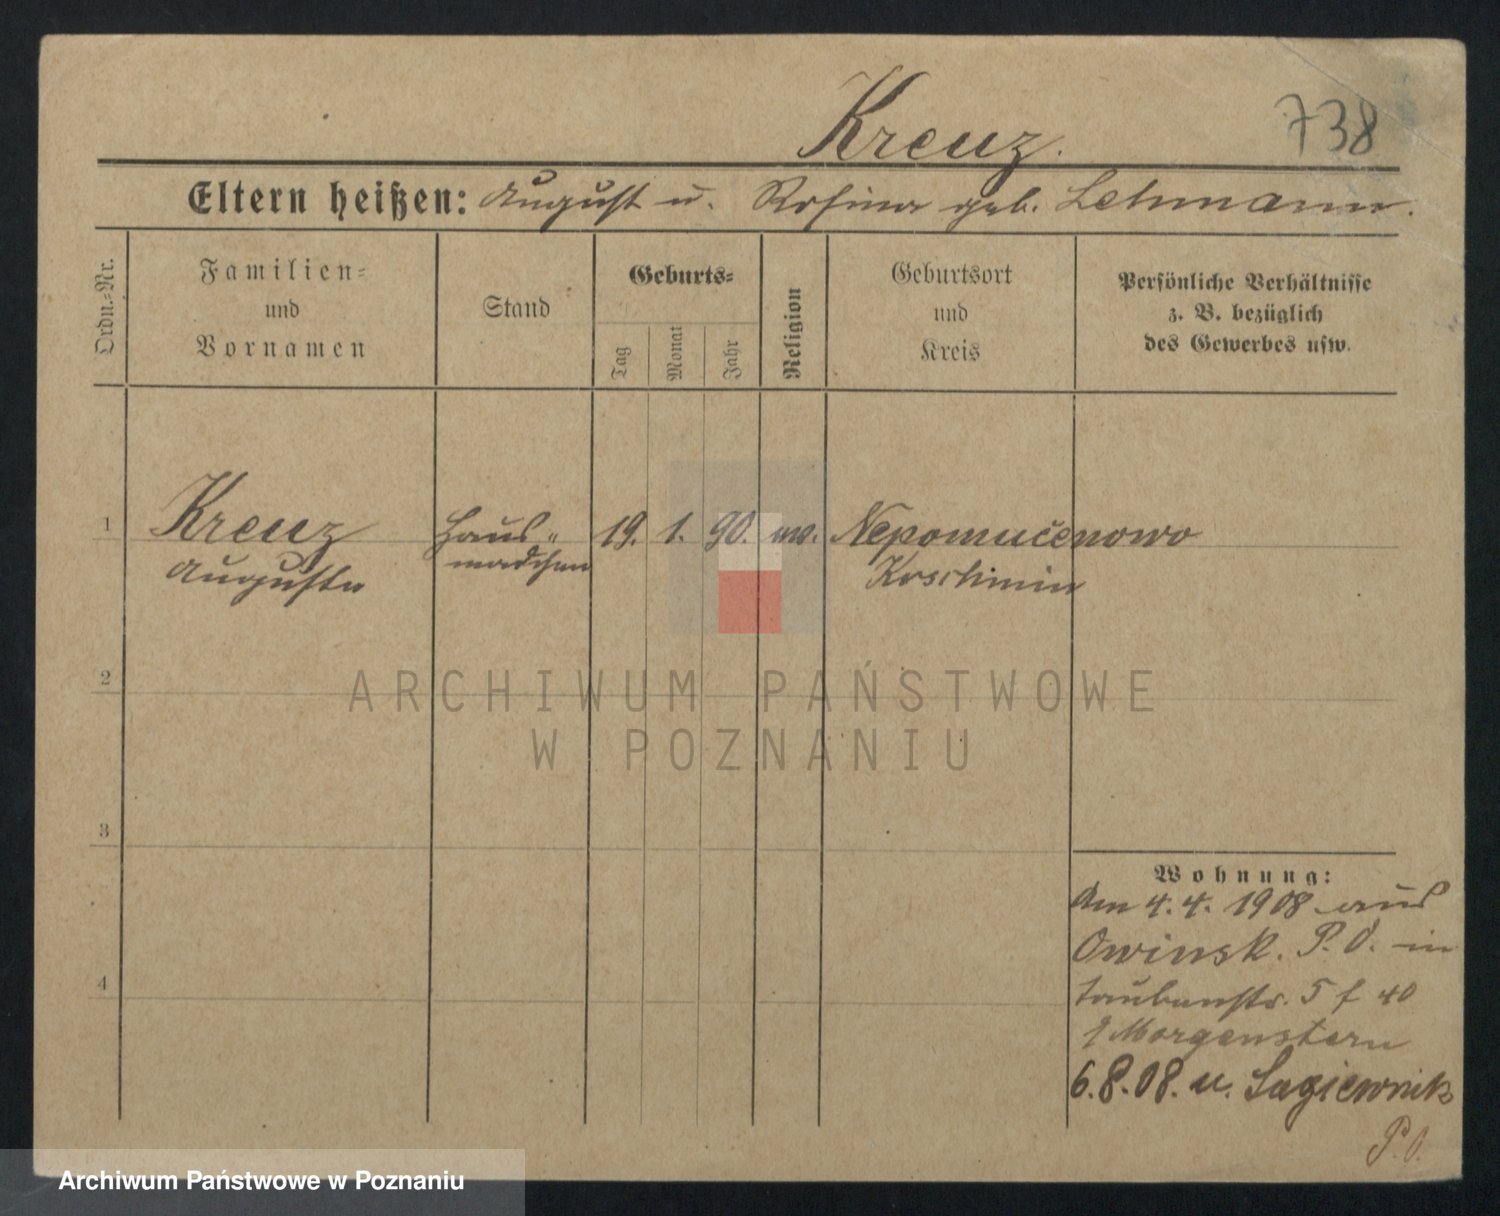 Kreuz.
738
Eltern heißen: August u. Rosina geb. Lehmann.
Ordn.-Nr.
Familien-
und
Vornamen
Stand
Geburts-
Tag
Monat
Jahr
Religion
Geburtsort
und
Kreis
Persönliche Verhältnisse
z. B. bezüglich
des Gewerbes usw.
1
Kreuz
Auguste
Haus-
mädchen
19. 1. 90.
ev.
Nepomucenowo
Koschmin
2
3
4
Wohnung:
Am 4.4. 1908 aus
Owinsk. P. O. in
Taubenstr. 5 f 40
Morgenstern
6.8.08. n. Lagiewnik
P. O.
ARCHIWUM PAŃSTWOWE
W POZNANIU
Archiwum Państwowe w Poznaniu